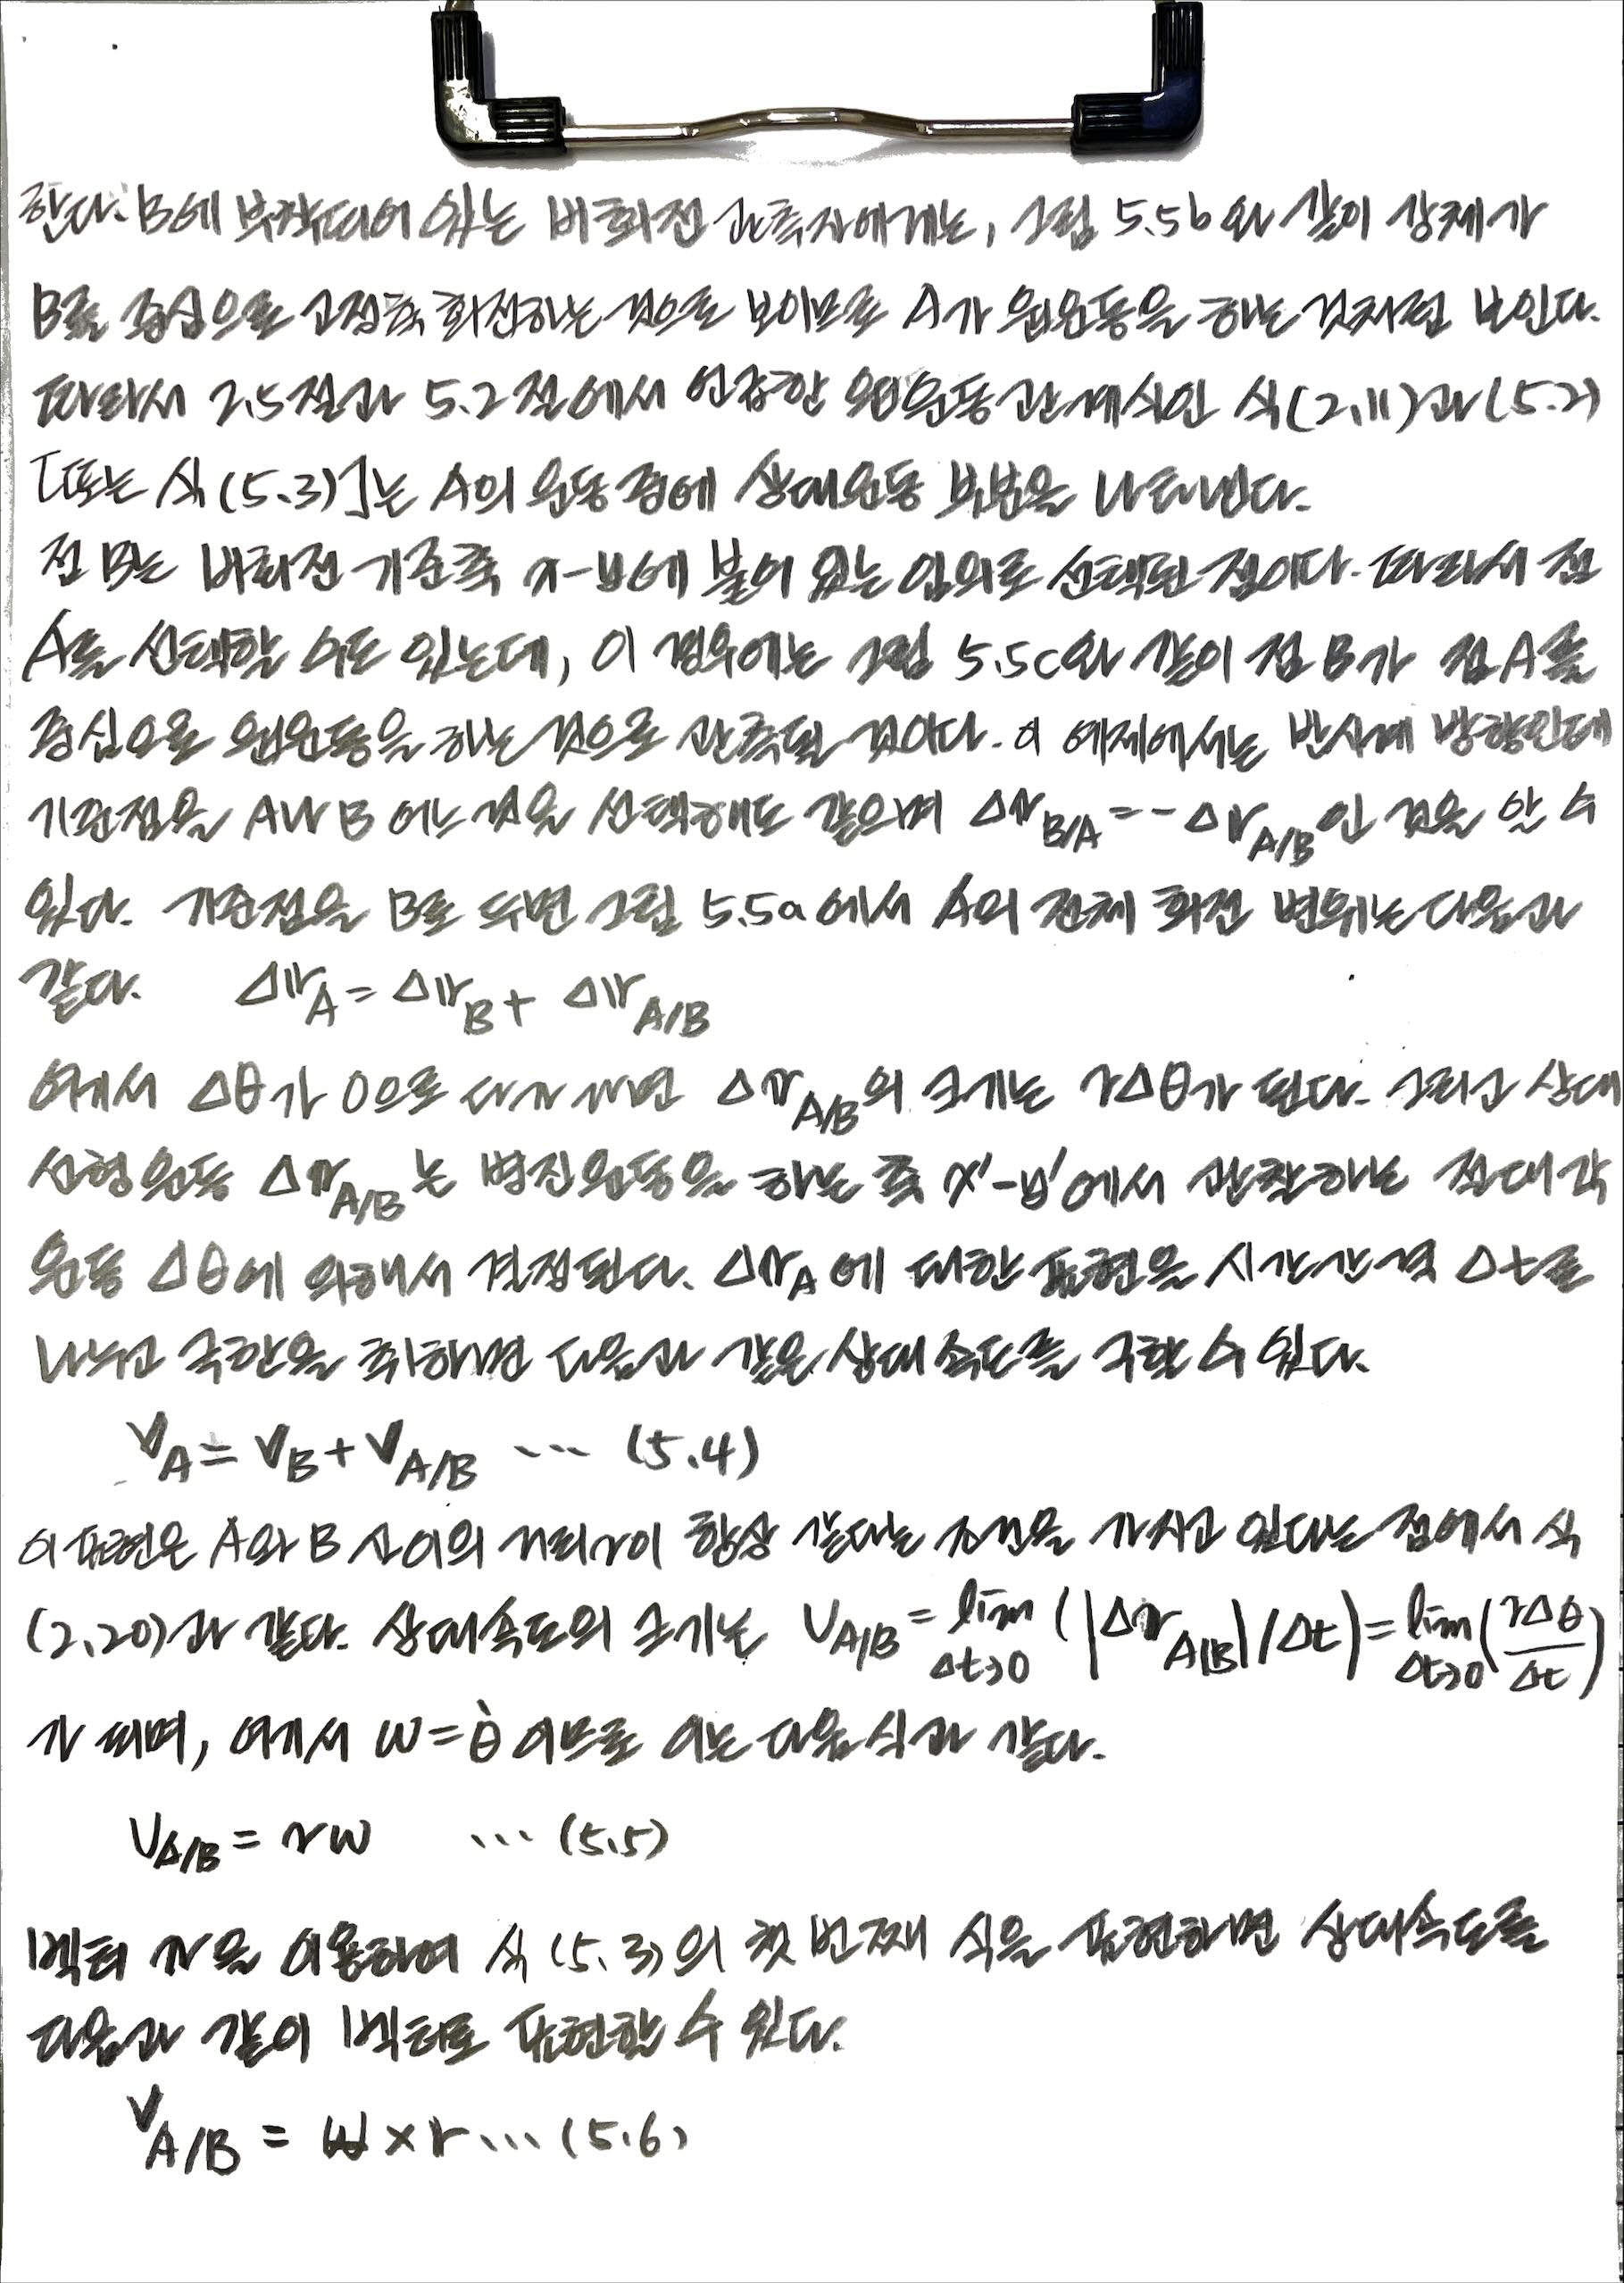 한다. B에 부착되어 있는 비회전 관측자에게는, 그림 5.5b와 같이 강체가
B를 중심으로 고정축 회전하는 것으로 보이므로 A가 원운동을 하는 것처럼 보인다.
따라서 2.5절과 5.2절에서 언급한 원운동 관계식인 식(2.11)과 (5.2)
[또는 식(5.3)]는 A의 운동 중에 상대운동 부분을 나타낸다.
점 B는 비회전 기준축 x-y에 붙어 있는 임의로 선택된 점이다. 따라서 점
A를 선택할 수도 있는데, 이 경우에는 그림 5.5c와 같이 점 B가 점 A를
중심으로 원운동을 하는 것으로 관측될 것이다. 이 예제에서는 반시계 방향인데
기준점을 A나 B 어느 것을 선택해도 같으며 Δr_B/A = -Δr_A/B인 것을 알 수
있다. 기준점을 B로 두면 그림 5.5a에서 A의 전체 회전 변위는 다음과
같다. Δr_A = Δr_B + Δr_A/B
여기서 Δθ가 0으로 다가가면 Δr_A/B의 크기는 rΔθ가 된다. 그리고 상대
선형 운동 Δr_A/B는 병진운동을 하는 축 x'-y'에서 관찰하는 절대 각
운동 Δθ에 의해서 결정된다. Δr_A에 대한 표현을 시간간격 Δt로
나누고 극한을 취하면 다음과 같은 상대 속도를 구할 수 있다.
v_A = v_B + v_A/B ... (5.4)
이 표현은 A와 B 사이의 거리 r이 항상 같다는 조건을 가지고 있다는 점에서 식
(2.20)과 같다. 상대속도의 크기는 v_A/B = lim_Δt→0 (|Δr_A/B|/Δt) = lim_Δt→0 (rΔθ/Δt)
가 되며, 여기서 ω = θ̇ 이므로 이는 다음 식과 같다.
v_A/B = rω ... (5.5)
벡터 r을 이용하여 식 (5.3)의 첫 번째 식을 표현하면 상대속도를
다음과 같이 벡터로 표현할 수 있다.
v_A/B = ω × r ... (5.6)